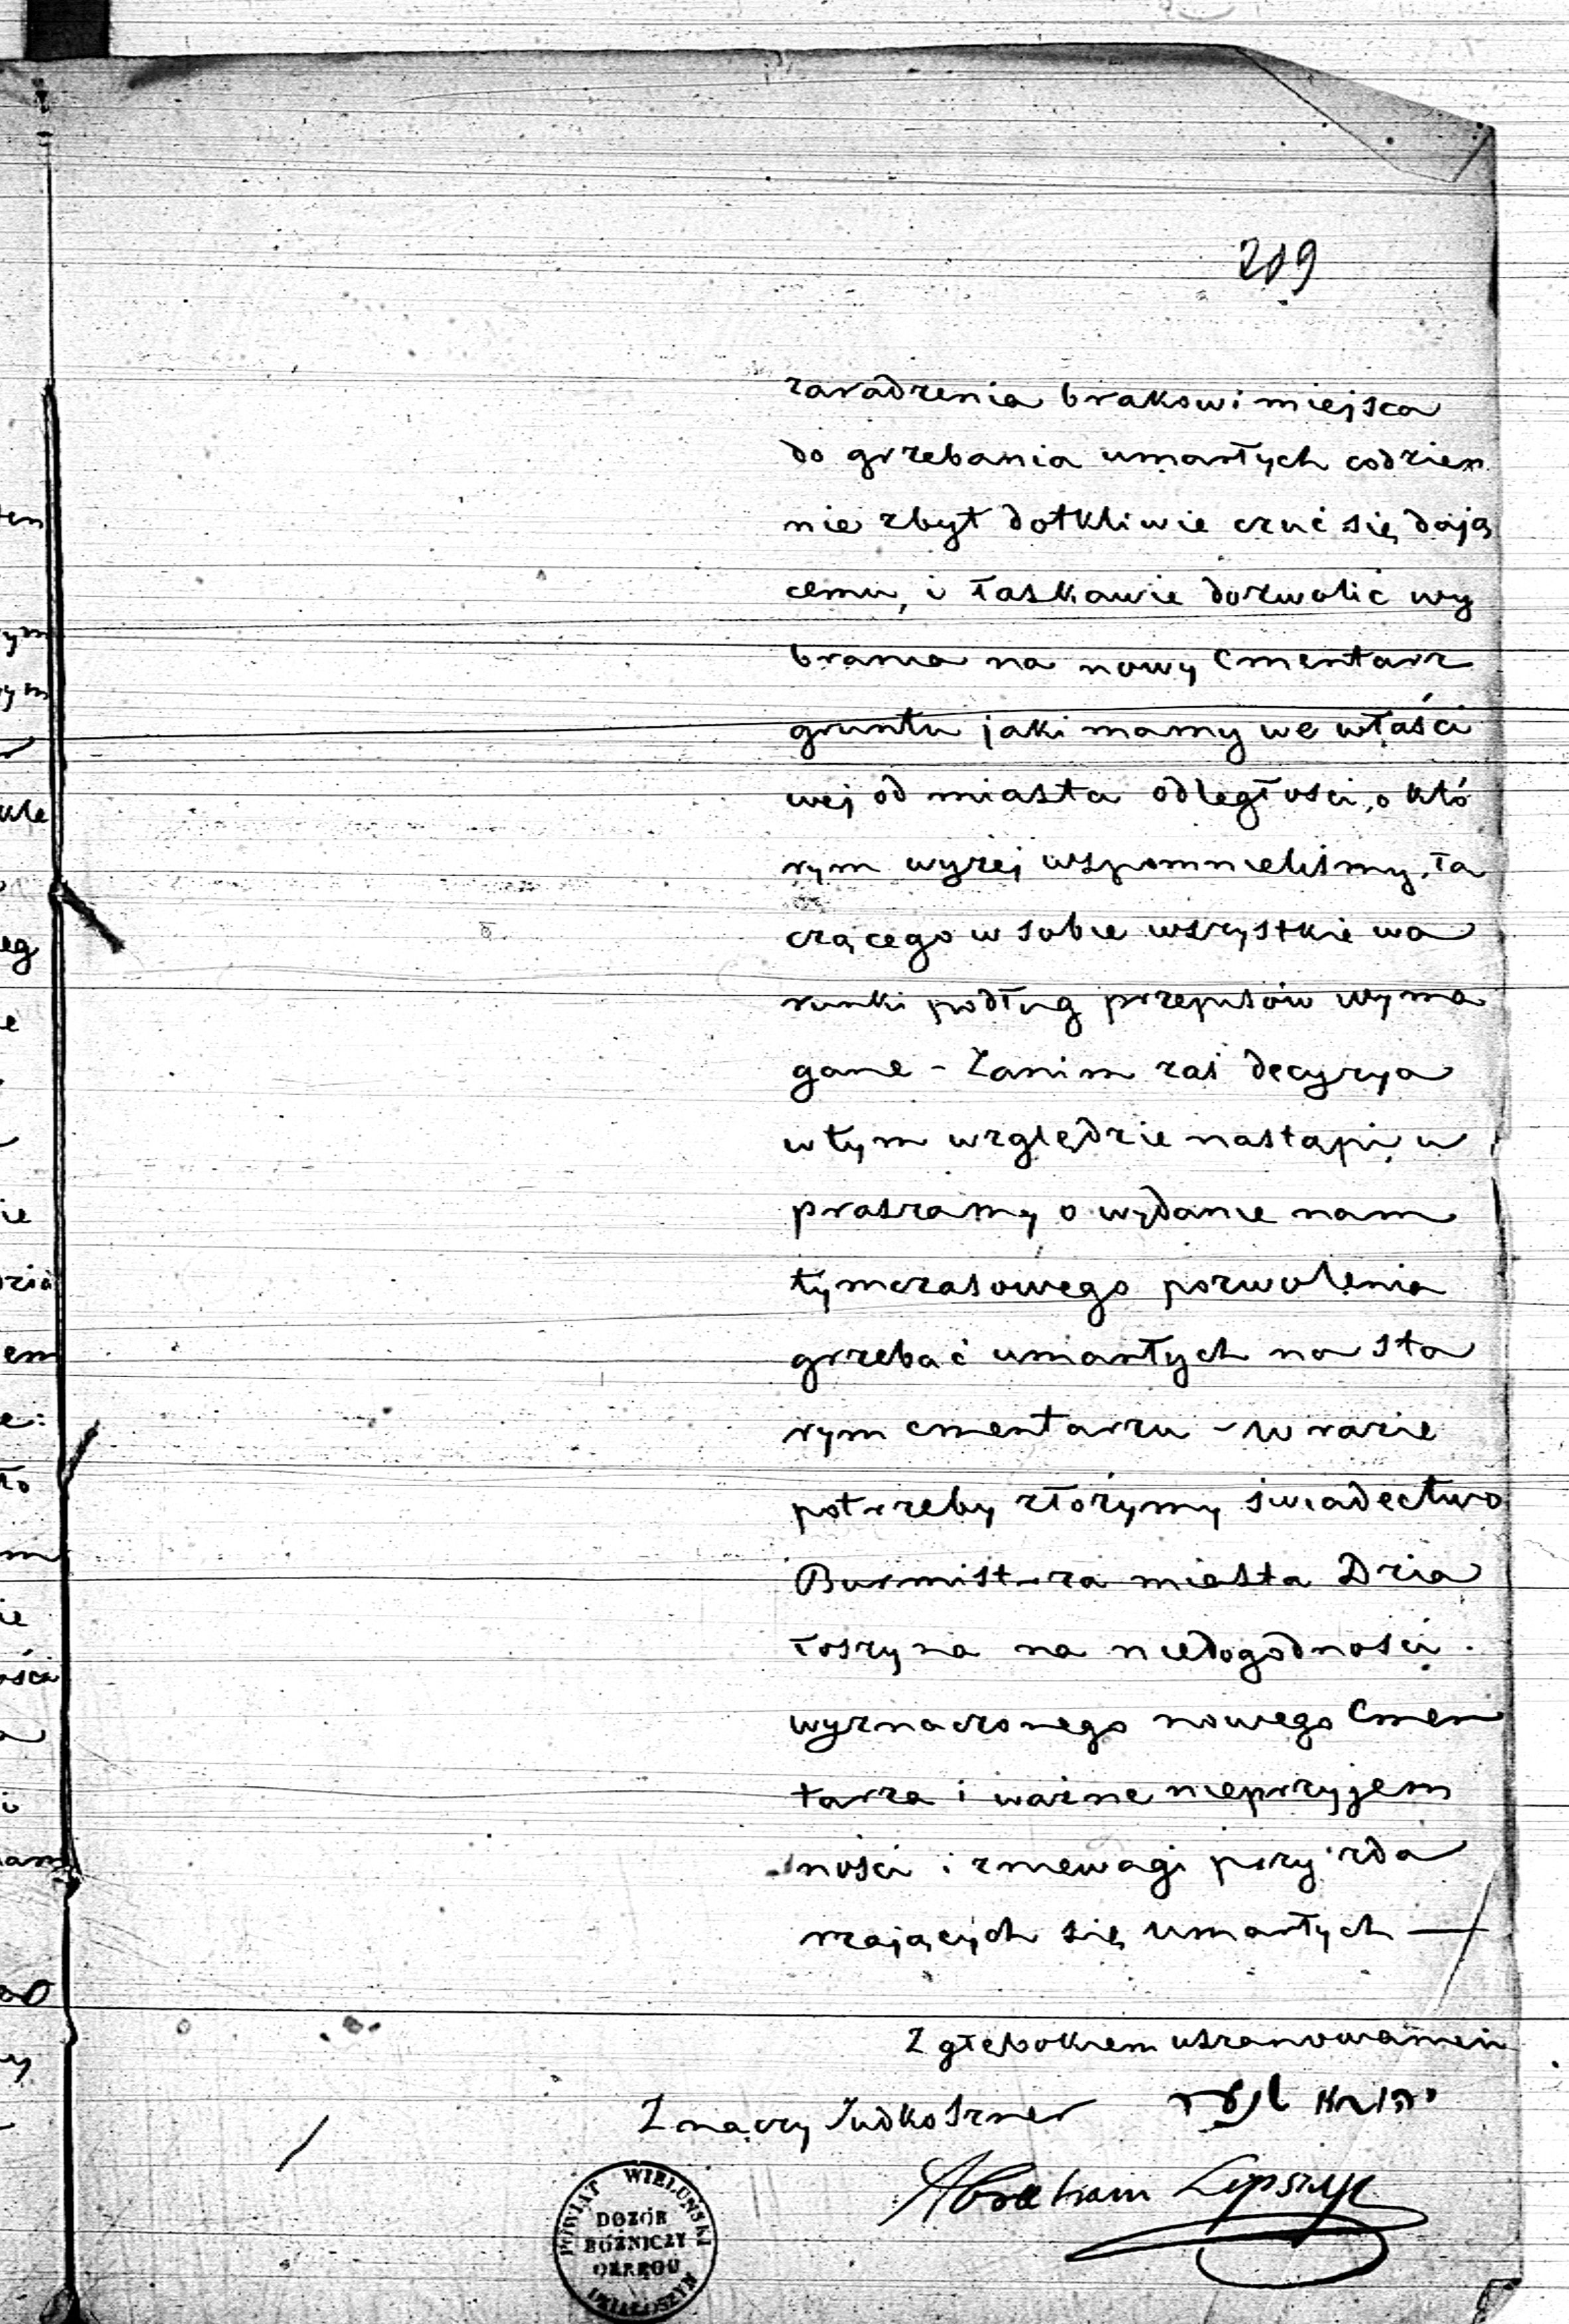 209
zaradzenia brakowi miejsca
do grzebania umarłych codzien
nie zbyt dotkliwie czuć się dają
cemu, i łaskawie dozwolić wy
brania na nowy Cmentarz
gruntu jaki mamy we właści
wej od miasta odległości, o któ
rym wyżej wspomnieliśmy, łą
czącego w sobie wszystkie wa
runki podług przepisów wyma
gane - Zanim zaś decyzya
w tym względzie nastąpi, u
praszamy o wydanie nam
tymczasowego pozwolenia
grzebać umarłych na sta
rym cmentarzu - w razie
potrzeby złożymy świadectwo
Burmistrza miasta Dzia
łoszyna na niedogodności
wyznaczonego nowego Cmen
tarza i ważne nieprzyjem
ności i zniewagi przy zda
rzających się umarłych —
Z głębokiem uszanowaniem
Znaczy Judko
Abraham Lipszyc
POWIAT WIELUŃSKI
DOZÓR
BÓŻNICZY
OKRĘGU
DZIAŁOSZYN
ten
ym
ym
kle
eg
e
ie
em
e:
ło
m
ie
ości
i